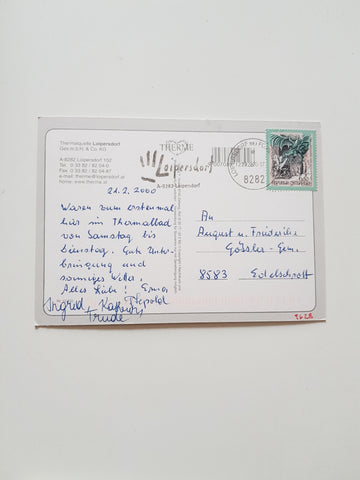 Thermalquelle Loipersdorf
Ges.m.b.H. & Co. KG
A-8282 Loipersdorf 152
Tel.: 0 33 82 / 82 04-0
Fax: 0 33 82 / 82 04-87
e-mail: therme@loipersdorf.at
home: www.therme.at
THERME
Loipersdorf
A-8282 Loipersdorf
8282
REPUBLIK ÖSTERREICH
21.2.2000
Waren zum erstenmal
hier im Thermalbad
von Samstag bis
Dienstag. Gute Unter-
bringung und
sonniges Wetter.
Alles Liebe!
Ingrid
Trude
An
August u. Friederike
Gößler-
8583 Edelschrott